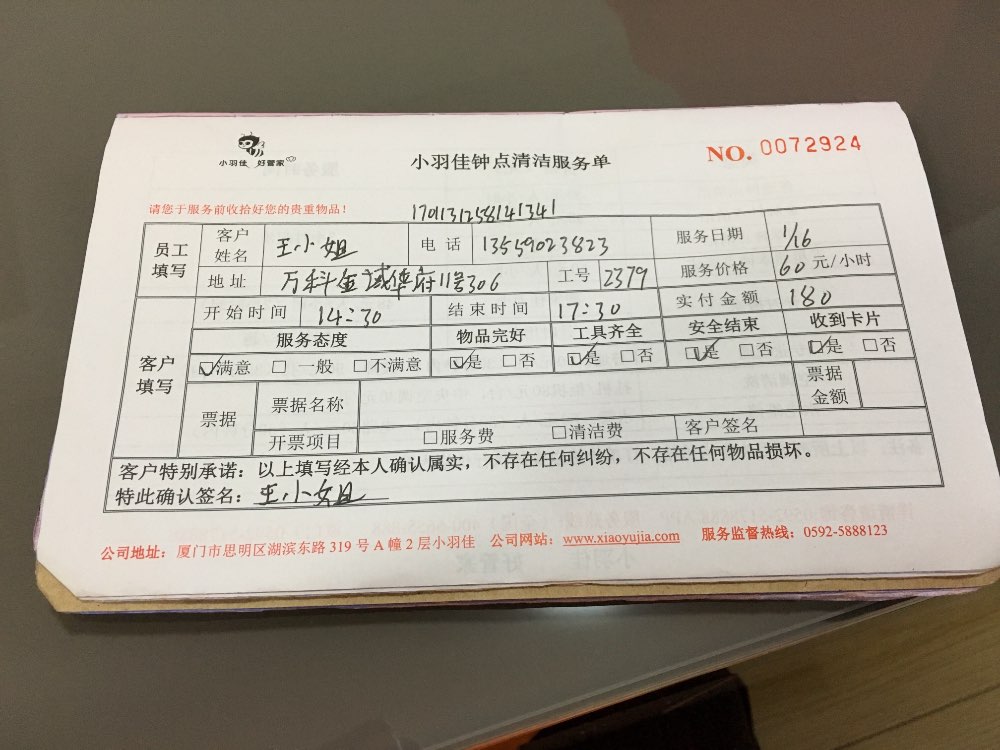 小羽佳 好管家
小羽佳钟点清洁服务单
NO. 0072924
请您于服务前收拾好您的贵重物品！
170131258141341
员工填写 客户姓名 王小姐 电话 13559023823 服务日期 1/16
地址 万科金域华府11号306 工号 2379 服务价格 60元/小时
客户填写 开始时间 14:30 结束时间 17:30 实付金额 180
服务态度 物品完好 工具齐全 安全结束 收到卡片
☑满意 □ 一般 □不满意 ☑是 □否 ☑是 □否 ☑是 □否 ☑是 □否
票据 票据名称 票据金额
开票项目 □服务费 □清洁费 客户签名
客户特别承诺：以上填写经本人确认属实，不存在任何纠纷，不存在任何物品损坏。
特此确认签名：王小姐
公司地址：厦门市思明区湖滨东路 319 号 A 幢 2 层小羽佳 公司网站：www.xiaoyujia.com 服务监督热线：0592-5888123